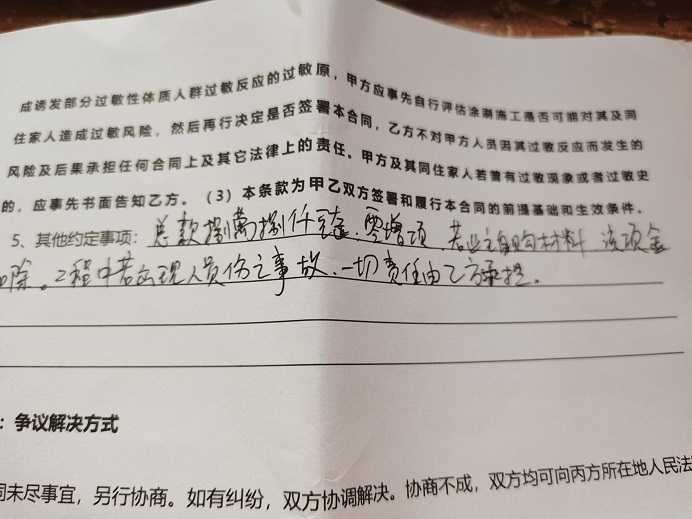 成诱发部分过敏性体质人群过敏反应的过敏原，甲方应事先自行评估涂刷施工是否可能对其及同
住家人造成过敏风险，然后再行决定是否签署本合同，乙方不对甲方人员因其过敏反应而发生的
风险及后果承担任何合同上及其它法律上的责任。甲方及其同住家人若曾有过敏现象或者过敏史
的，应事先书面告知乙方。（3）本条款为甲乙双方签署和履行本合同的前提基础和生效条件。
5、其他约定事项：总款捌萬捌仟元整，零增项，若业主自购材料 该项金
扣除。工程中若出现人员伤亡事故，一切责任由乙方承担。
：争议解决方式
同未尽事宜，另行协商。如有纠纷，双方协调解决。协商不成，双方均可向丙方所在地人民法